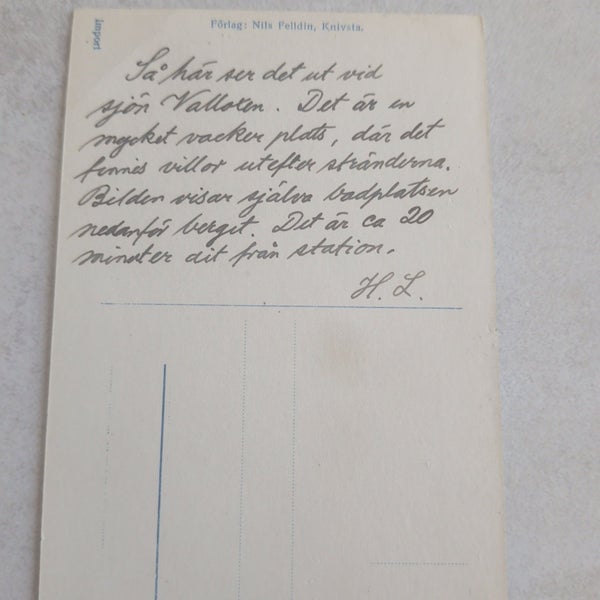 Förlag: Nils Felldin, Knivsta.
import
Så här ser det ut vid
sjön Valloxen. Det är en
mycket vacker plats, där det
finnes villor utefter stränderna.
Bilden visar själva badplatsen
nedanför berget. Det är ca 20
minuter dit från station.
H. L.